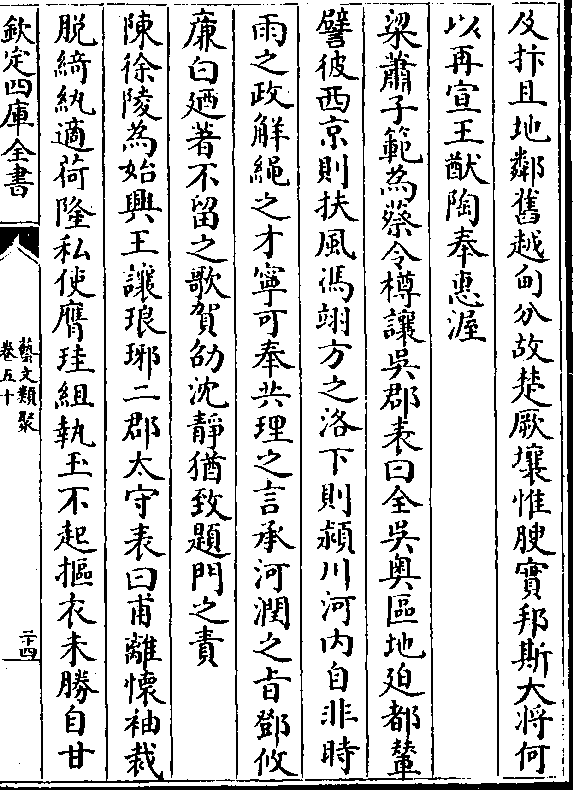 及抃且地鄰舊越甸分故楚厥壤惟腴實邦斯大将何
以再宣王猷陶奉惠渥
梁蕭子範為蔡令樽讓吳郡表曰全吳奥區地廹都輦
譬彼西京則扶風馮翊方之洛下則潁川河内自非時
雨之政解繩之才寧可奉共理之言承河潤之㫖鄧攸
亷白廼著不留之歌賀劭沈靜猶致題門之責
陳徐陵為始興王讓琅琊二郡太守表曰甫離懷袖裁
脱綺紈適荷隆私使膺珪組執玉不起摳衣未勝自甘
欽定四庫全書
藝文類聚
卷五十
二十四